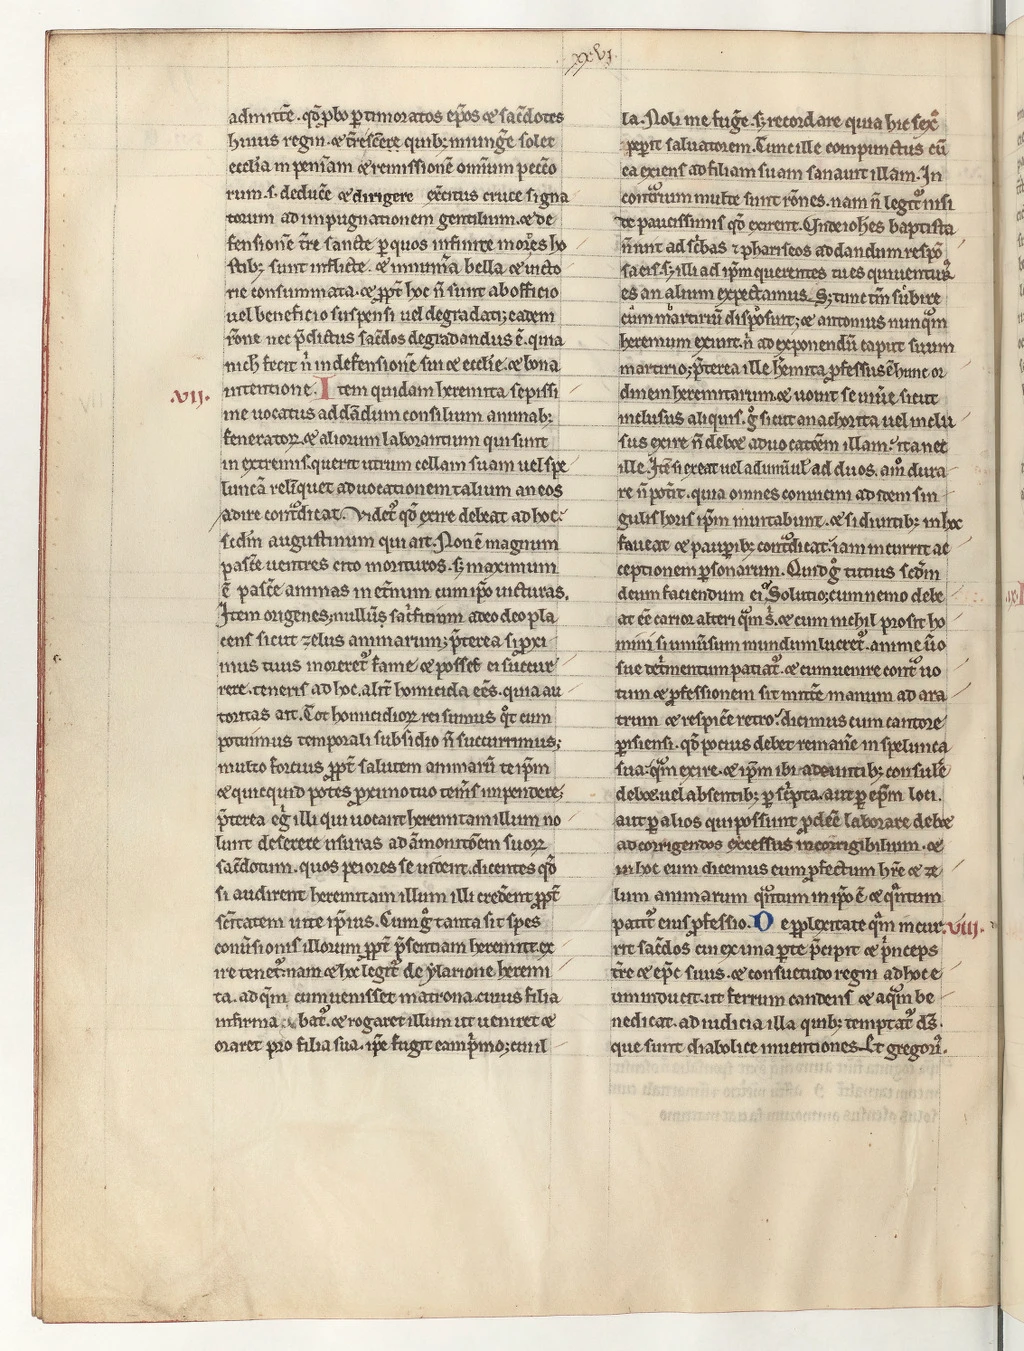 xxvi
admitte͂. qđ ꝓbo ꝑ timoratos ep̃os ⁊ sac̃dotes
huius regni. ⁊ t̃rescere quib; iniunge᷑ solet
eccl̃ia in penĩam ⁊ remissionẽ om̃ium pecc̃o
rum .s. deduc̃e ⁊ dirigere exc̃itus cruce signa
torum ad impugnationem gentilium. ⁊ de
fensionẽ t̃re sancte ꝑ quos infinite mortes ho
stib; sunt inflicte. ⁊ innum̃a bella ⁊ uicto
rie consummata. ⁊ ꝓpt̃ hoc ñ sunt ab officio
uel beneficio suspensi uel degradati; eadem
rõne nec p̃dictus sac̃dos degradandus ẽ. quia
nich̃ fecit ñ in defensionẽ sui ⁊ eccl̃ie. ⁊ bona
intentione. Item quidam heremita sepissi
.VII.
me uocatus ad dandum consilium animab;
feneratoꝝ. ⁊ aliorum laborantium qui sunt
in extremis. querit utrum cellam suam uel spe
luncã relĩquet ad uocationem talium an eos
adire cont̃dicat. Videt̃ qđ exire debeat ad hoc.
scd̃m augustinum qui ait. Non ẽ magnum
pasc̃e uentres cito morituros. s; maximum
ẽ pasc̃e animas in et̃num cum ip̃o uicturas.
Item origenes; nullum sac̃ficium adeo deo pla
cens sicut zelus animarum; p̃terea si ꝓxi
mus tuus moreret̃ fame ⁊ posses ei succur
rere. teneris ad hoc. alit̃ homicida ees. quia au
toritas ait. Tot homicidioꝝ rei sumus qͦt cum
potuimus temporali subsidio ñ succurrimus;
multo forcius ꝓpt̃ salutem animarũ teip̃m
⁊ quicquid potes ꝓximo tuo tem̃s impendere;
p̃terea eg̃ illi qui uocant heremitam illum no
lunt deserere usuras ad ãmonitõem suoꝝ
sac̃dotum. quos peiores se uident. dicentes qđ
si audirent heremitam illum illi cred̃ent ꝓpt̃
sc̃itatem uite ip̃ius. Cum g̃ tanta sit spes
conũsionis illorum ꝓpt̃ p̃sentiam heremite. ex
ire tenet̃. nam ⁊ hec legit̃ de ylarione heremi
ta. ad qm̃ cum uenisset matrona. cuius filia
infirma bat̃. ⁊ rogaret illum ut ueniret ⁊
oraret pro filia sua. ip̃e fugit eam p̃mo; cui il
la. Noli me fug̃e. s; recordare quia hic sexͦ
peꝑit saluatorem. Tunc ille compunctus cũ
ea exiens ad filiam suam sanauit illam. In
cont̃rium multe sunt rõnes. nam ñ legit̃ nisi
de paucissimis qđ exirent. Unde ioh̃es baptista
ñ iuit ad sc̃bas ⁊ phariseos ad dandum respõ
sa eis. s; illi ad ip̃m querentes tu es qui uenturꝰ
es an alium expectamus. S; tunc tm̃ subire
cum martirium disposuit; ⁊ antonius nunqͣm
heremum exiuit. ñ ad exponendũ caput suum
martirio; p̃terea ille h̃emita ꝓfessus ẽ hunc or
dinem heremitarum. ⁊ uouit se uiũe sicut
inclusus aliquis. g̃ sicut anachorita uel inclu
sus exire ñ debet ad uocatõem illam. ita nec
ille. Itẽ si exeat uel ad unũ uł ad duos. am̃ dura
re ñ pot̃it. quia omnes conuicini ad idem sin
gulis horis ip̃m inuitabunt. ⁊ si diuitib; in hoc
faueat ⁊ paupib; cont̃dicat. iam incurrit ac
ceptionem ꝑsonarum. Quid g̃ tutius scd̃m
deum faciendum ei? Solutio; cum nemo debe
at eẽ carior alteri qͣm s̃. ⁊ cum nichil prosit ho
mini si uniũsum mundum lucret̃. anime ũo
sue det̃mentum patiat̃. ⁊ cum uenire cont̃ uo
tum ⁊ ꝓfessionem sit mitt̃e manum ad ara
trum ⁊ respic̃e retro. dicimus cum cantore
ꝑisiensi. qđ pocius debet remañe in spelunca
sua. qͣm exire. ⁊ ip̃m ibi adeuntib; consule͂
debet. uel absentib; ꝑ sc̃pta. aut ꝑ ep̃m loci.
aut ꝑ alios qui possunt ꝓdeẽ laborare debet
ad corrigendos excessus incorrigibilium. ⁊
in hoc eum dicemus cum ꝓfectum hr̃e ⁊ ze
lum animarum qͣntum in ip̃o ẽ ⁊ qͣntum
patit̃ eius ꝓfessio. De ꝑplexitate qͣm incur
.VIII.
rit sac̃dos cui ex una parte p̃cipit ⁊ p̃nceps
t̃re ⁊ ep̃c suus. ⁊ consuetudo regni ad hoc e
um inducit. ut ferrum candens ⁊ aqͣm be
nedicat. ad iudicia illa quib; temptat̃ d̃s.
que sunt diabolice inuentiones. Et gregori᷑.